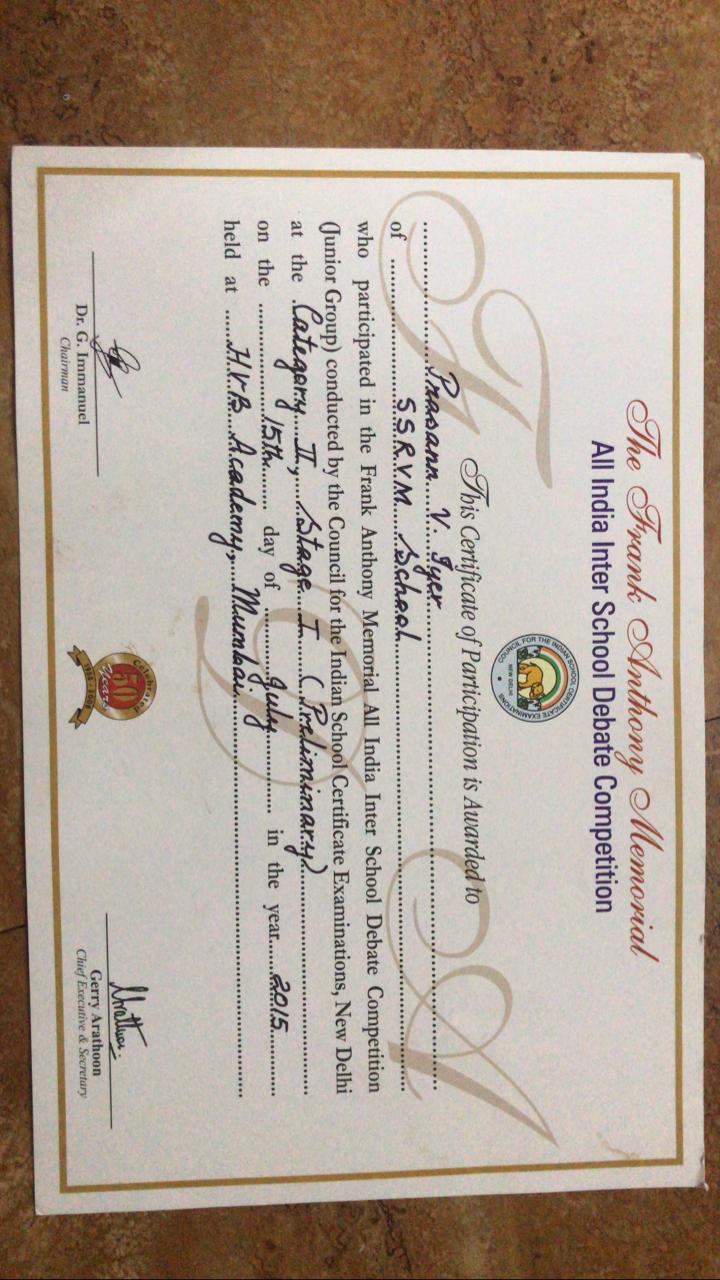 The Frank Anthony Memorial
All India Inter School Debate Competition
COUNCIL FOR THE INDIAN SCHOOL CERTIFICATE EXAMINATIONS
NEW DELHI
This Certificate of Participation is Awarded to
Prasann V. Iyer
of SSRVM School
who participated in the Frank Anthony Memorial All India Inter School Debate Competition
(Junior Group) conducted by the Council for the Indian School Certificate Examinations, New Delhi
at the Category II, Stage I (Preliminary)
on the 15th day of July in the year 2015
held at HVB Academy, Mumbai
Celebrated
50
Years
Dr. G. Immanuel
Chairman
Gerry Arathoon
Chief Executive & Secretary